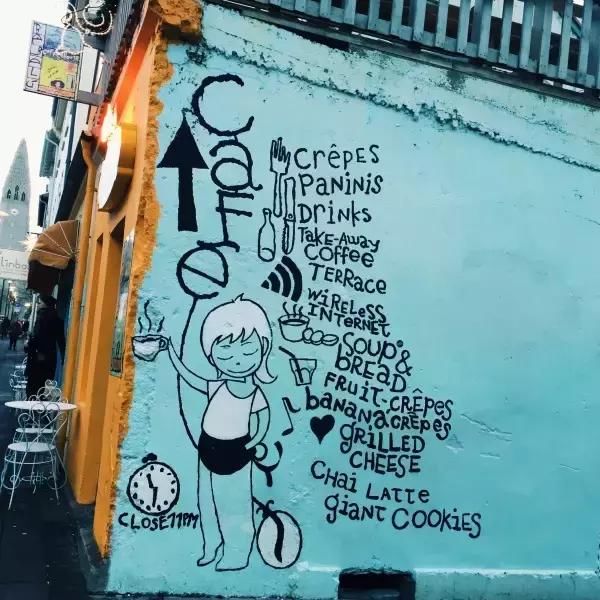 Cafe
Crêpes
Paninis
Drinks
Take-Away
Coffee
Terrace
Wireless
Internet
Soup &
Bread
Fruit-Crêpes
Banana Crêpes
Grilled
Cheese
Chai Latte
Giant Cookies
CLOSE 11PM